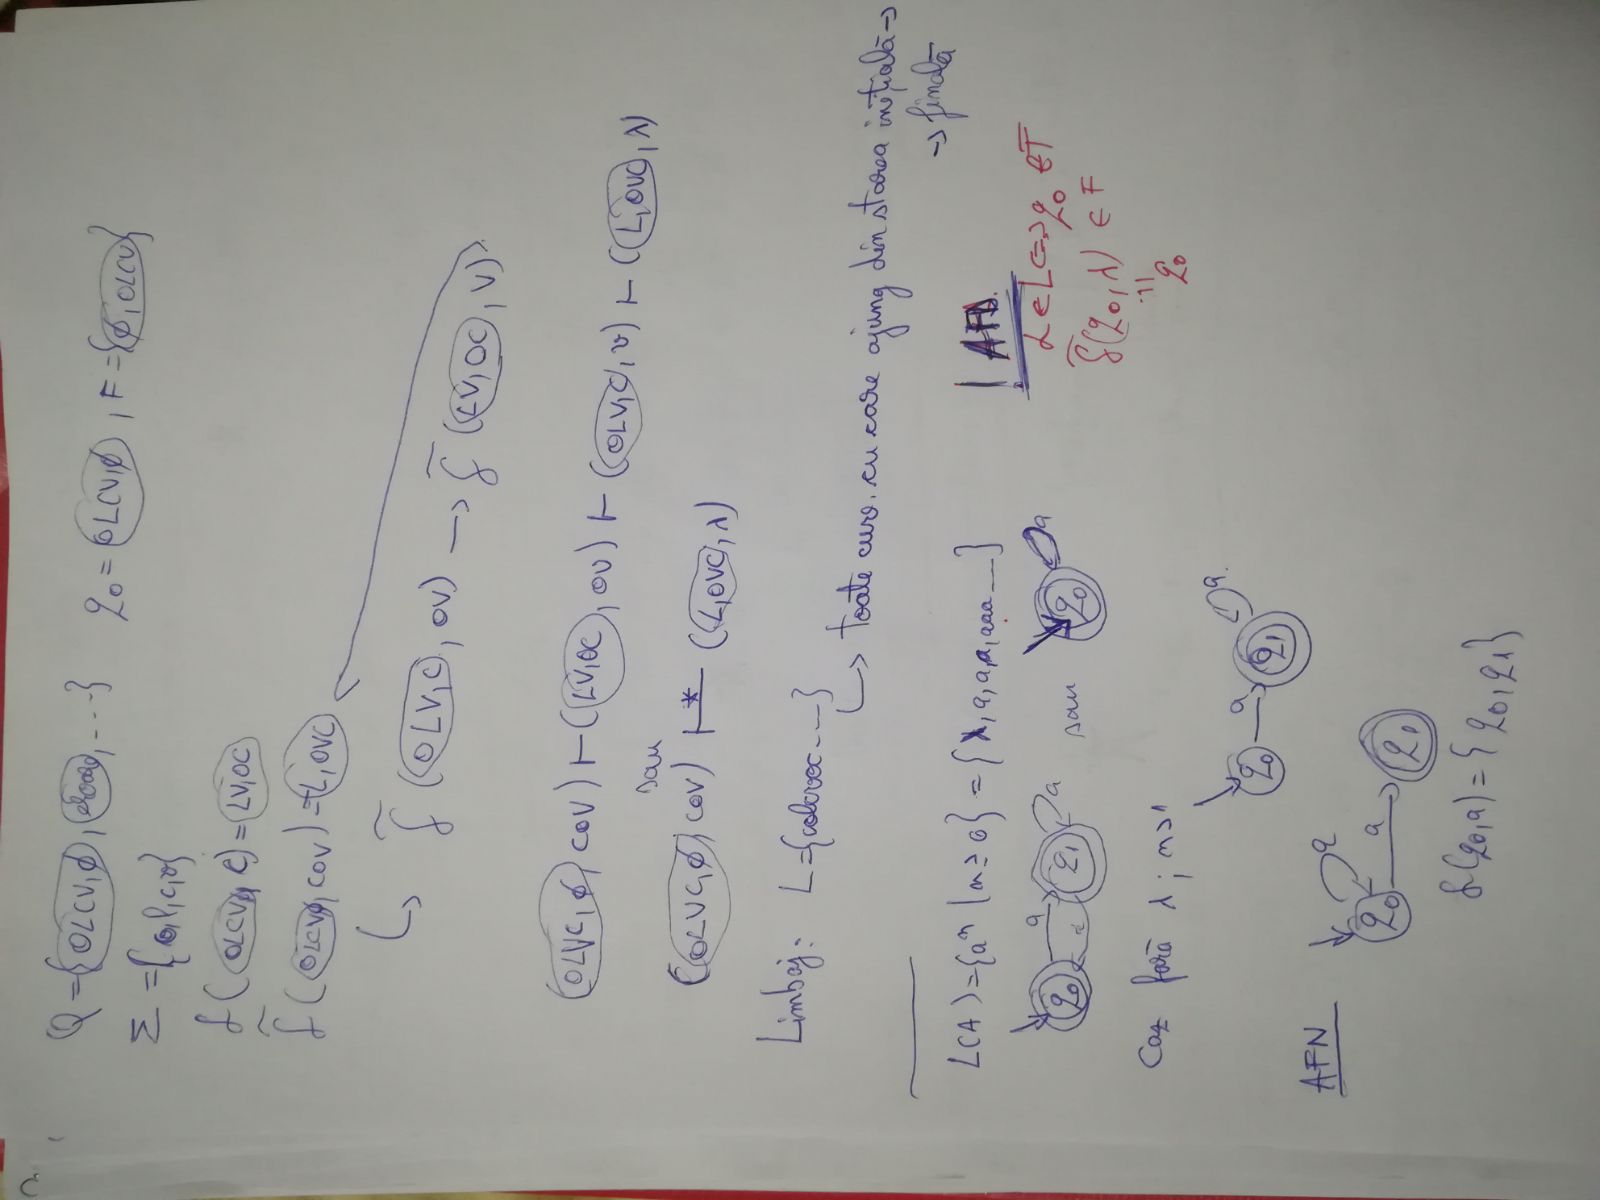 Q = {OLCV,ϕ, eroare, ...} q₀ = OLCV,ϕ, F = {ϕ,OLCV}
Σ = {o,l,c,v}
δ(OLCV,ϕ, c) = LV,OC
δ̃(OLCV,ϕ, cov) = L,OVC
↳ δ̃(OLV,C, ov) → δ̃(LV,OC, v)
(OLVC,ϕ, cov) ⊢ (LV,OC, ov) ⊢ (OLV,C, v) ⊢ (L,OVC, λ)
sau
(OLVC,ϕ, cov) ⊢* (L,OVC, λ)
Limbaj: L = {colcvoc...}
↳ toate cuv. cu care ajung din starea inițială →
→ finală
L(A) = {aⁿ | n ≥ 0} = {λ, a, aa, aaa ...}
q₀ a q₁ a sau q₀ a
AFD
λ ∈ L <=> q₀ ∈ F
δ̃(q₀, λ) ∈ F
q₀
Caz fără λ; n ≥ 1
q₀ a q₁ a
AFN
q₀ a a q₁
δ(q₀,a) = {q₀, q₁}